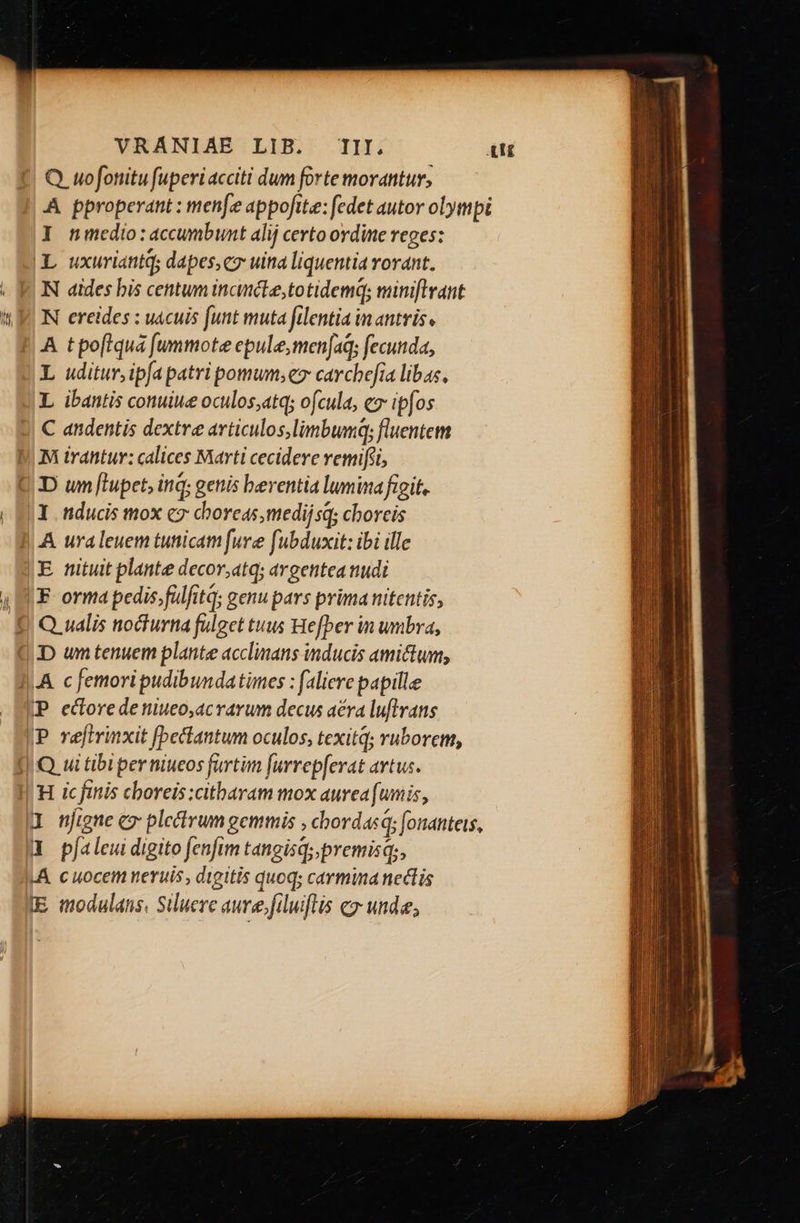 VRANIAE LIB. III.
Q uo ſonitu ſuperi acciti dum forte morantur,
A pproperant: menſæ appoſitæ: ſedet autor olympi
I n medio: accumbunt alij certo ordine reges:
L uxuriantq; dapes, & uina liquentia rorant.
N aides bis centum incinctæ, totidemq; miniſtrant
N ereides: uacuis ſunt muta ſilentia in antris.
A t poſtquã ſummotæ epulæ, menſaq; ſecunda,
L uditur, ipſa patri pomum, & carcheſia libas,
L ibantis conuiuæ oculos, atq; oſcula, & ipſos
C andentis dextræ articulos, limbumq; fluentem
M irantur: calices Marti cecidere remiſsi,
D um ſtupet, inq; genis hærentia lumina figit.
I nducis mox & choreas, medijsq; choreis
A ura leuem tunicam ſuræ ſubduxit: ibi ille
E nituit plantæ decor, atq; argentea nudi
F orma pedis, fulſitq; genu pars prima nitentis,
Q ualis nocturna fulget tuus Heſper in umbra,
D um tenuem plantæ acclinans inducis amictum,
A c femori pudibunda times: ſaliere papillæ
P ectore de niueo, ac rarum decus aëra luſtrans
P reſtrinxit ſpectantum oculos, texitq; ruborem,
Q ui tibi per niueos furtim ſurrepſerat artus.
H ic finis choreis: citharam mox aurea ſumis,
I nſigne & plectrum gemmis, chordasq; ſonanteis,
I pſa leui digito ſenſim tangisq;, premisq;,
A c uocem neruis, digitis quoq; carmina nectis
E modulans. Siluere auræ, ſiluiſtis & undæ,